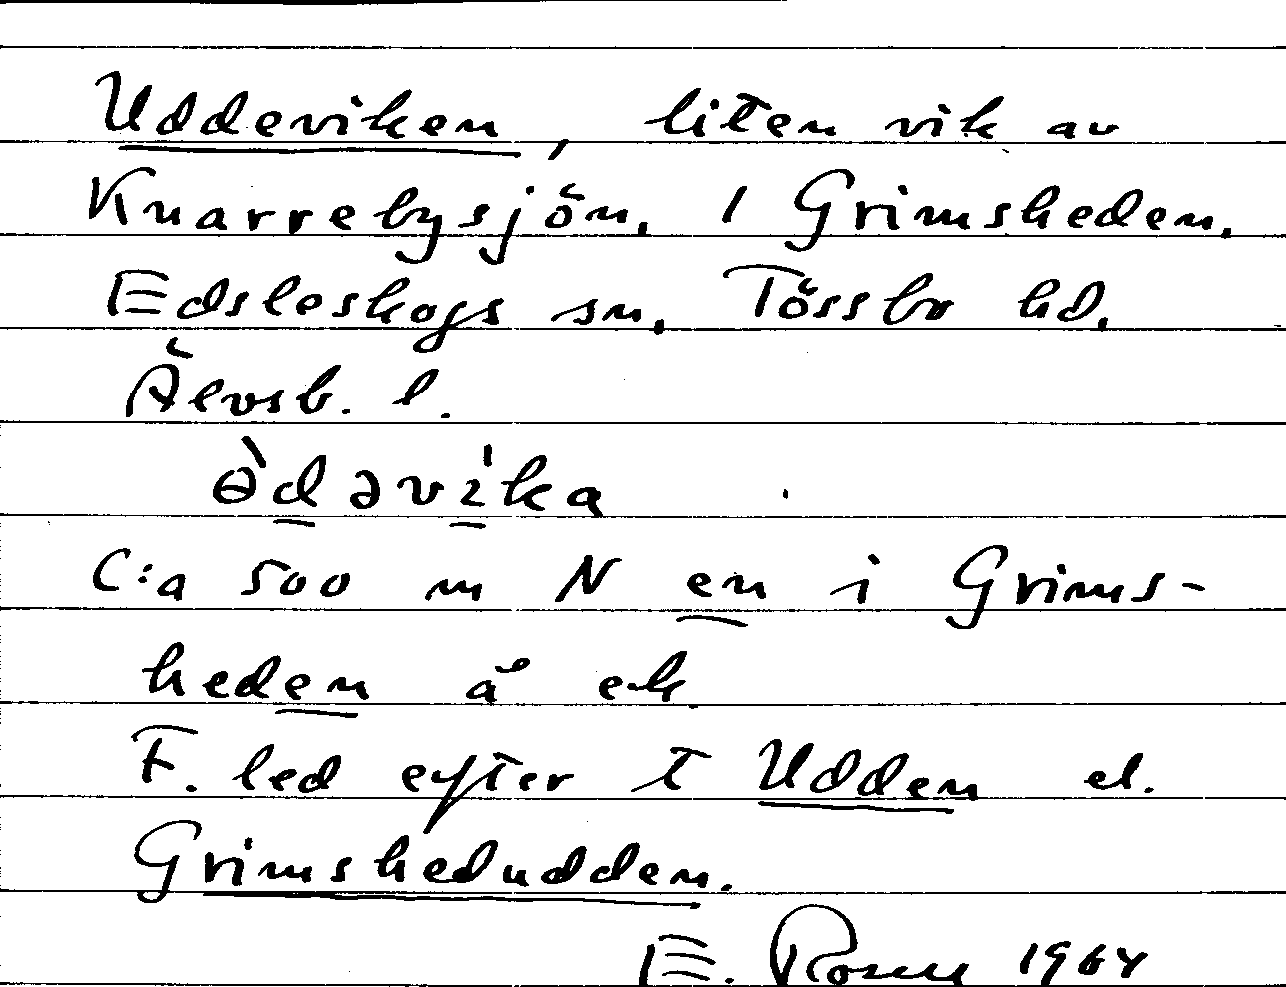 Uddeviken, liten vik av
Knarrebysjön. I Grimsheden,
Edsleskogs sn, Tössbo hd,
Älvsb. l.
ɵ̀dəvi̍ka
C:a 500 m N en i Grims-
heden å ek.
F. led efter t Udden el.
Grimshedudden.
E. Rosell 1964